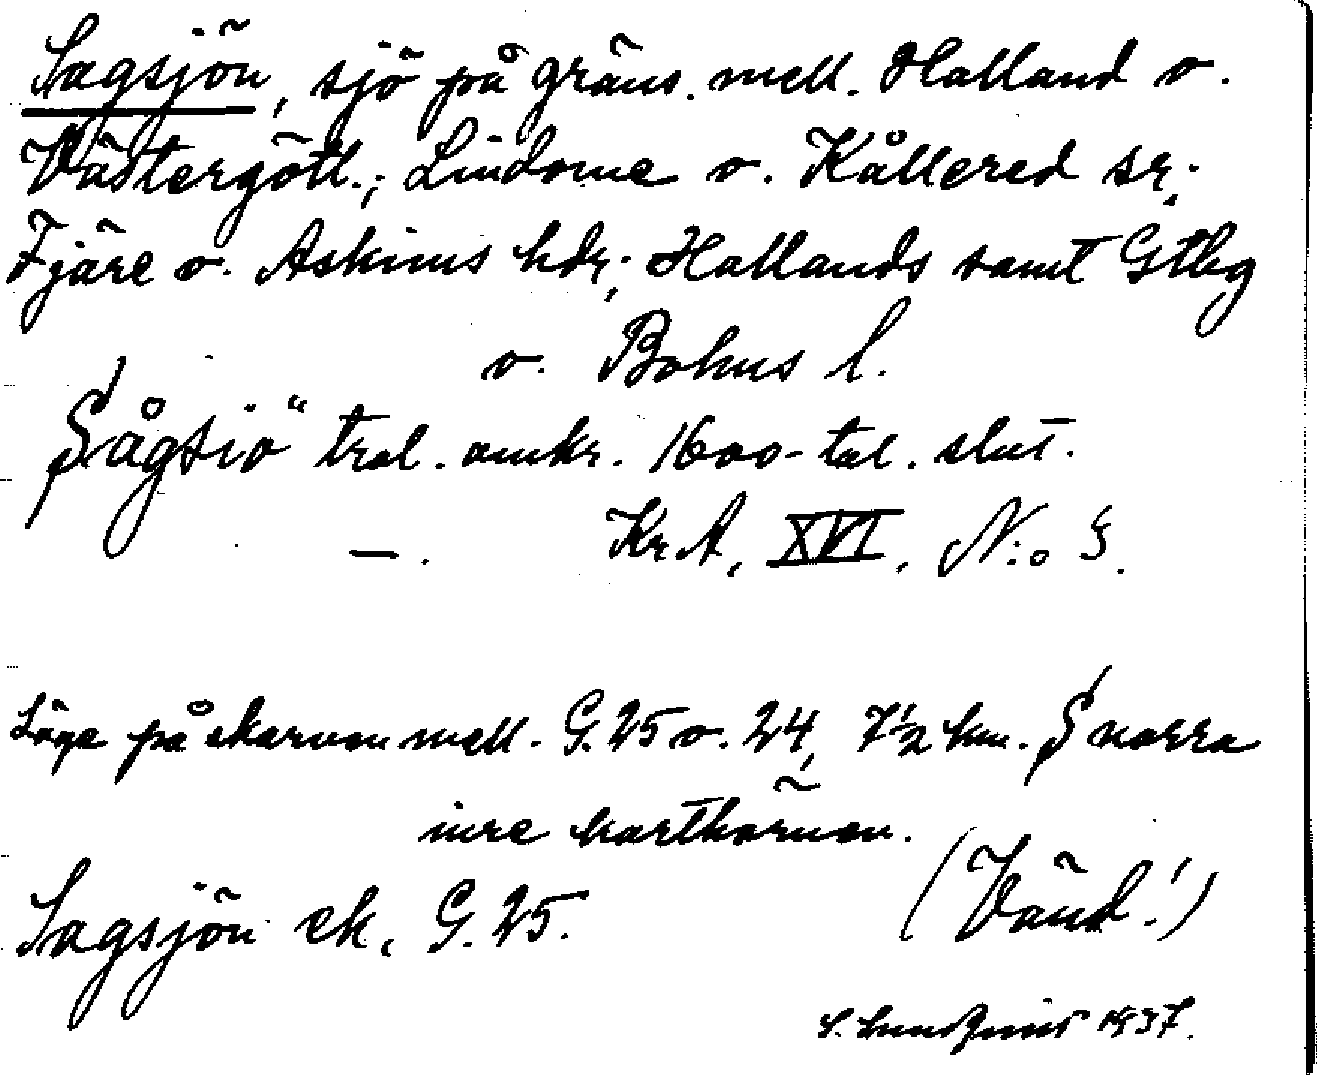 Sagsjön, sjö på gräns. mell. Halland o.
Västergötl.; Lindome o. Kållered sr;
Fjäre o. Askims hdr; Hallands samt Gtbg
o. Bohus l.
"Sågsiö" trol. omkr. 1600-tal. slut.
—. KrA, XVI, N:o 3.
Läge på skarven mell. G.25 o. 24, 7½ km. S norra
inre karthörnen.
Sagsjön ek. G. 25.
(Vänd!)
S. Lundquist 1937.